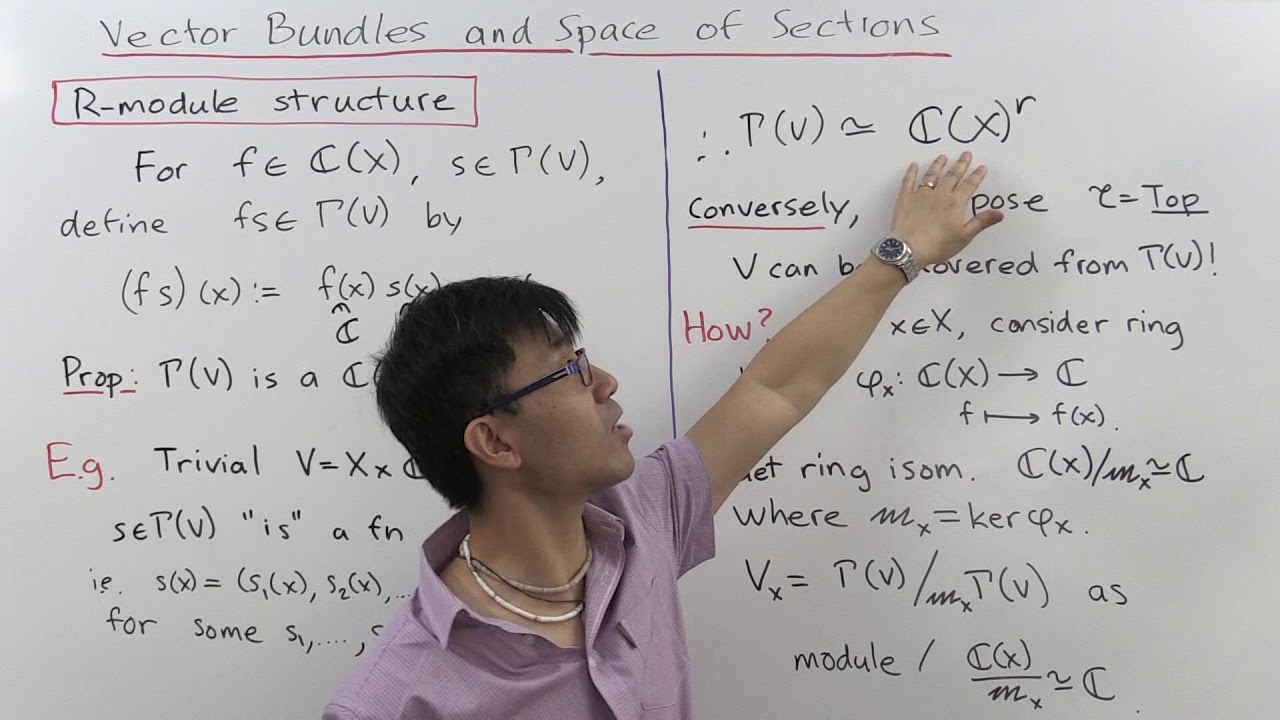 Vector Bundles and Space of Sections
R-module structure
For f ∈ ℂ(X), s ∈ Γ(V),
define fs ∈ Γ(V) by
(fs)(x) := f(x) s(x)
ℂ
Prop: Γ(V) is a ℂ(
E.g. Trivial V = X × ℂ
s∈Γ(V) "is" a fn
i.e. s(x) = (s₁(x), s₂(x), ...
for some s₁, ....,
∴ Γ(V) ≃ ℂ(X)ʳ
Conversely, pose τ = Top
V can b overed from Γ(V)!
How? x∈X, consider ring
φₓ: ℂ(X) → ℂ
f ⟼ f(x).
et ring isom. ℂ(X)/mₓ ≃ ℂ
where mₓ = ker φₓ.
Vₓ = Γ(V)/mₓΓ(V) as
module / ℂ(X)/mₓ ≃ ℂ.